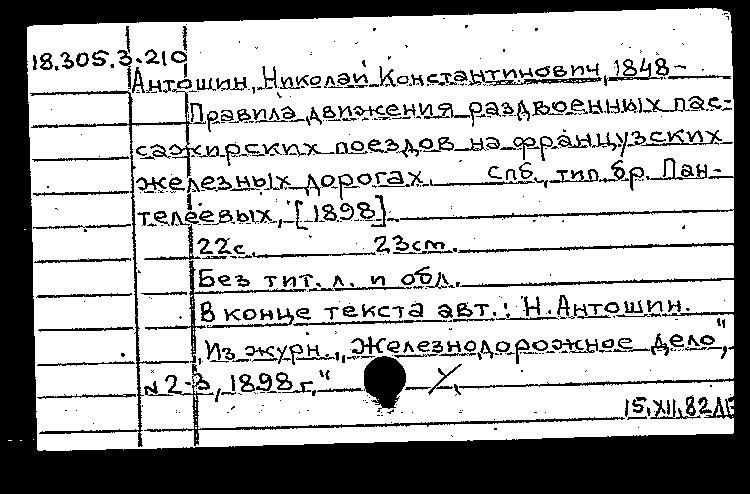 18.305.3.210
Антошин, Николай Константинович, 1848-
Правила движения раздвоенных пас-
сажирских поездов на французских
железных дорогах. Спб., тип. бр. Пан-
телеевых, [1898].
22с. 23ст.
Без тит. л. и обл.
В конце текста авт.: Н. Антошин.
„Из журн. „Железнодорожное дело",
N 2-3, 1898 г."
15.XII.82